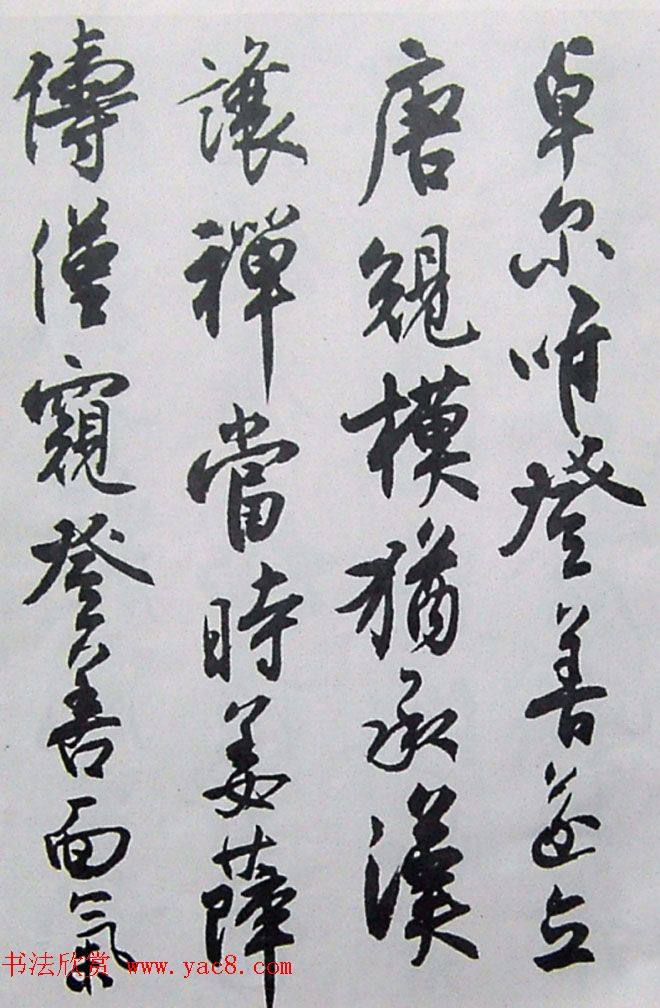 卓尔登善立
唐規模猶承漢
讓禪當時姜薛
儔僅窺登善面氣
书法欣赏 www.yac8.com